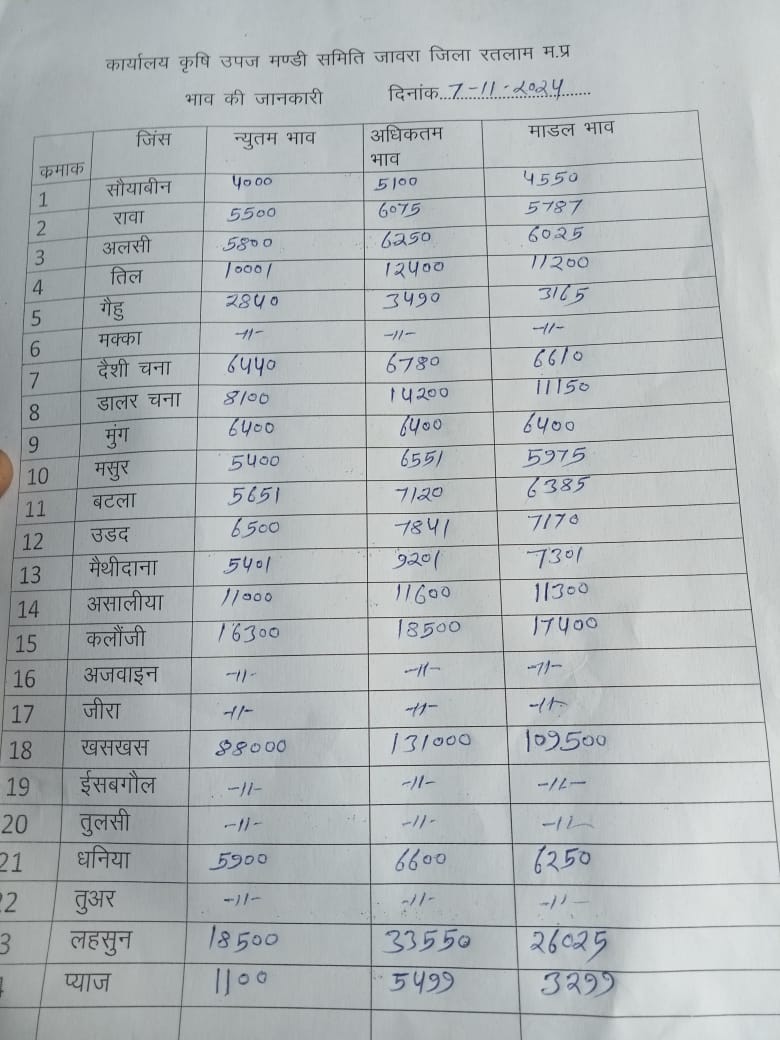 कार्यालय कृषि उपज मण्डी समिति जावरा जिला रतलाम म.प्र
भाव की जानकारी दिनांक...7-11-2024......
कमाक जिंस न्युतम भाव अधिकतम भाव माडल भाव
1 सौयाबीन 4000 5100 4550
2 रावा 5500 6075 5787
3 अलसी 5800 6250 6025
4 तिल 10001 12400 11200
5 गैहु 2840 3490 3165
6 मक्का -11- -11- -11-
7 दैशी चना 6440 6780 6610
8 डालर चना 8100 14200 11150
9 मुंग 6400 6400 6400
10 मसुर 5400 6551 5975
11 बटला 5651 7120 6385
12 उडद 6500 7841 7170
13 मैथीदाना 5401 9201 7301
14 असालीया 11000 11600 11300
15 कलौंजी 16300 18500 17400
16 अजवाइन -11- -11- -11-
17 जीरा -11- -11- -11-
18 खसखस 88000 131000 109500
19 ईसबगौल -11- -11- -11-
20 तुलसी -11- -11- -11-
21 धनिया 5900 6600 6250
2 तुअर -11- -11- -11-
3 लहसुन 18500 33550 26025
प्याज 1100 5499 3299